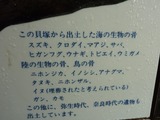 この貝塚から出土した海の生物の骨
スズキ、クロダイ、マアジ、サバ、
ヒガンフグ、ウナギ、トビエイ、ウミガメ
陸の生物の骨、鳥の骨
ニホンジカ、イノシシ、アナグマ、
タヌキ、ニホンザル、
イヌ(埋葬されたと考えられている)
ガン、カモ
この他に、弥生時代、奈良時代の遺物も
出土しています。